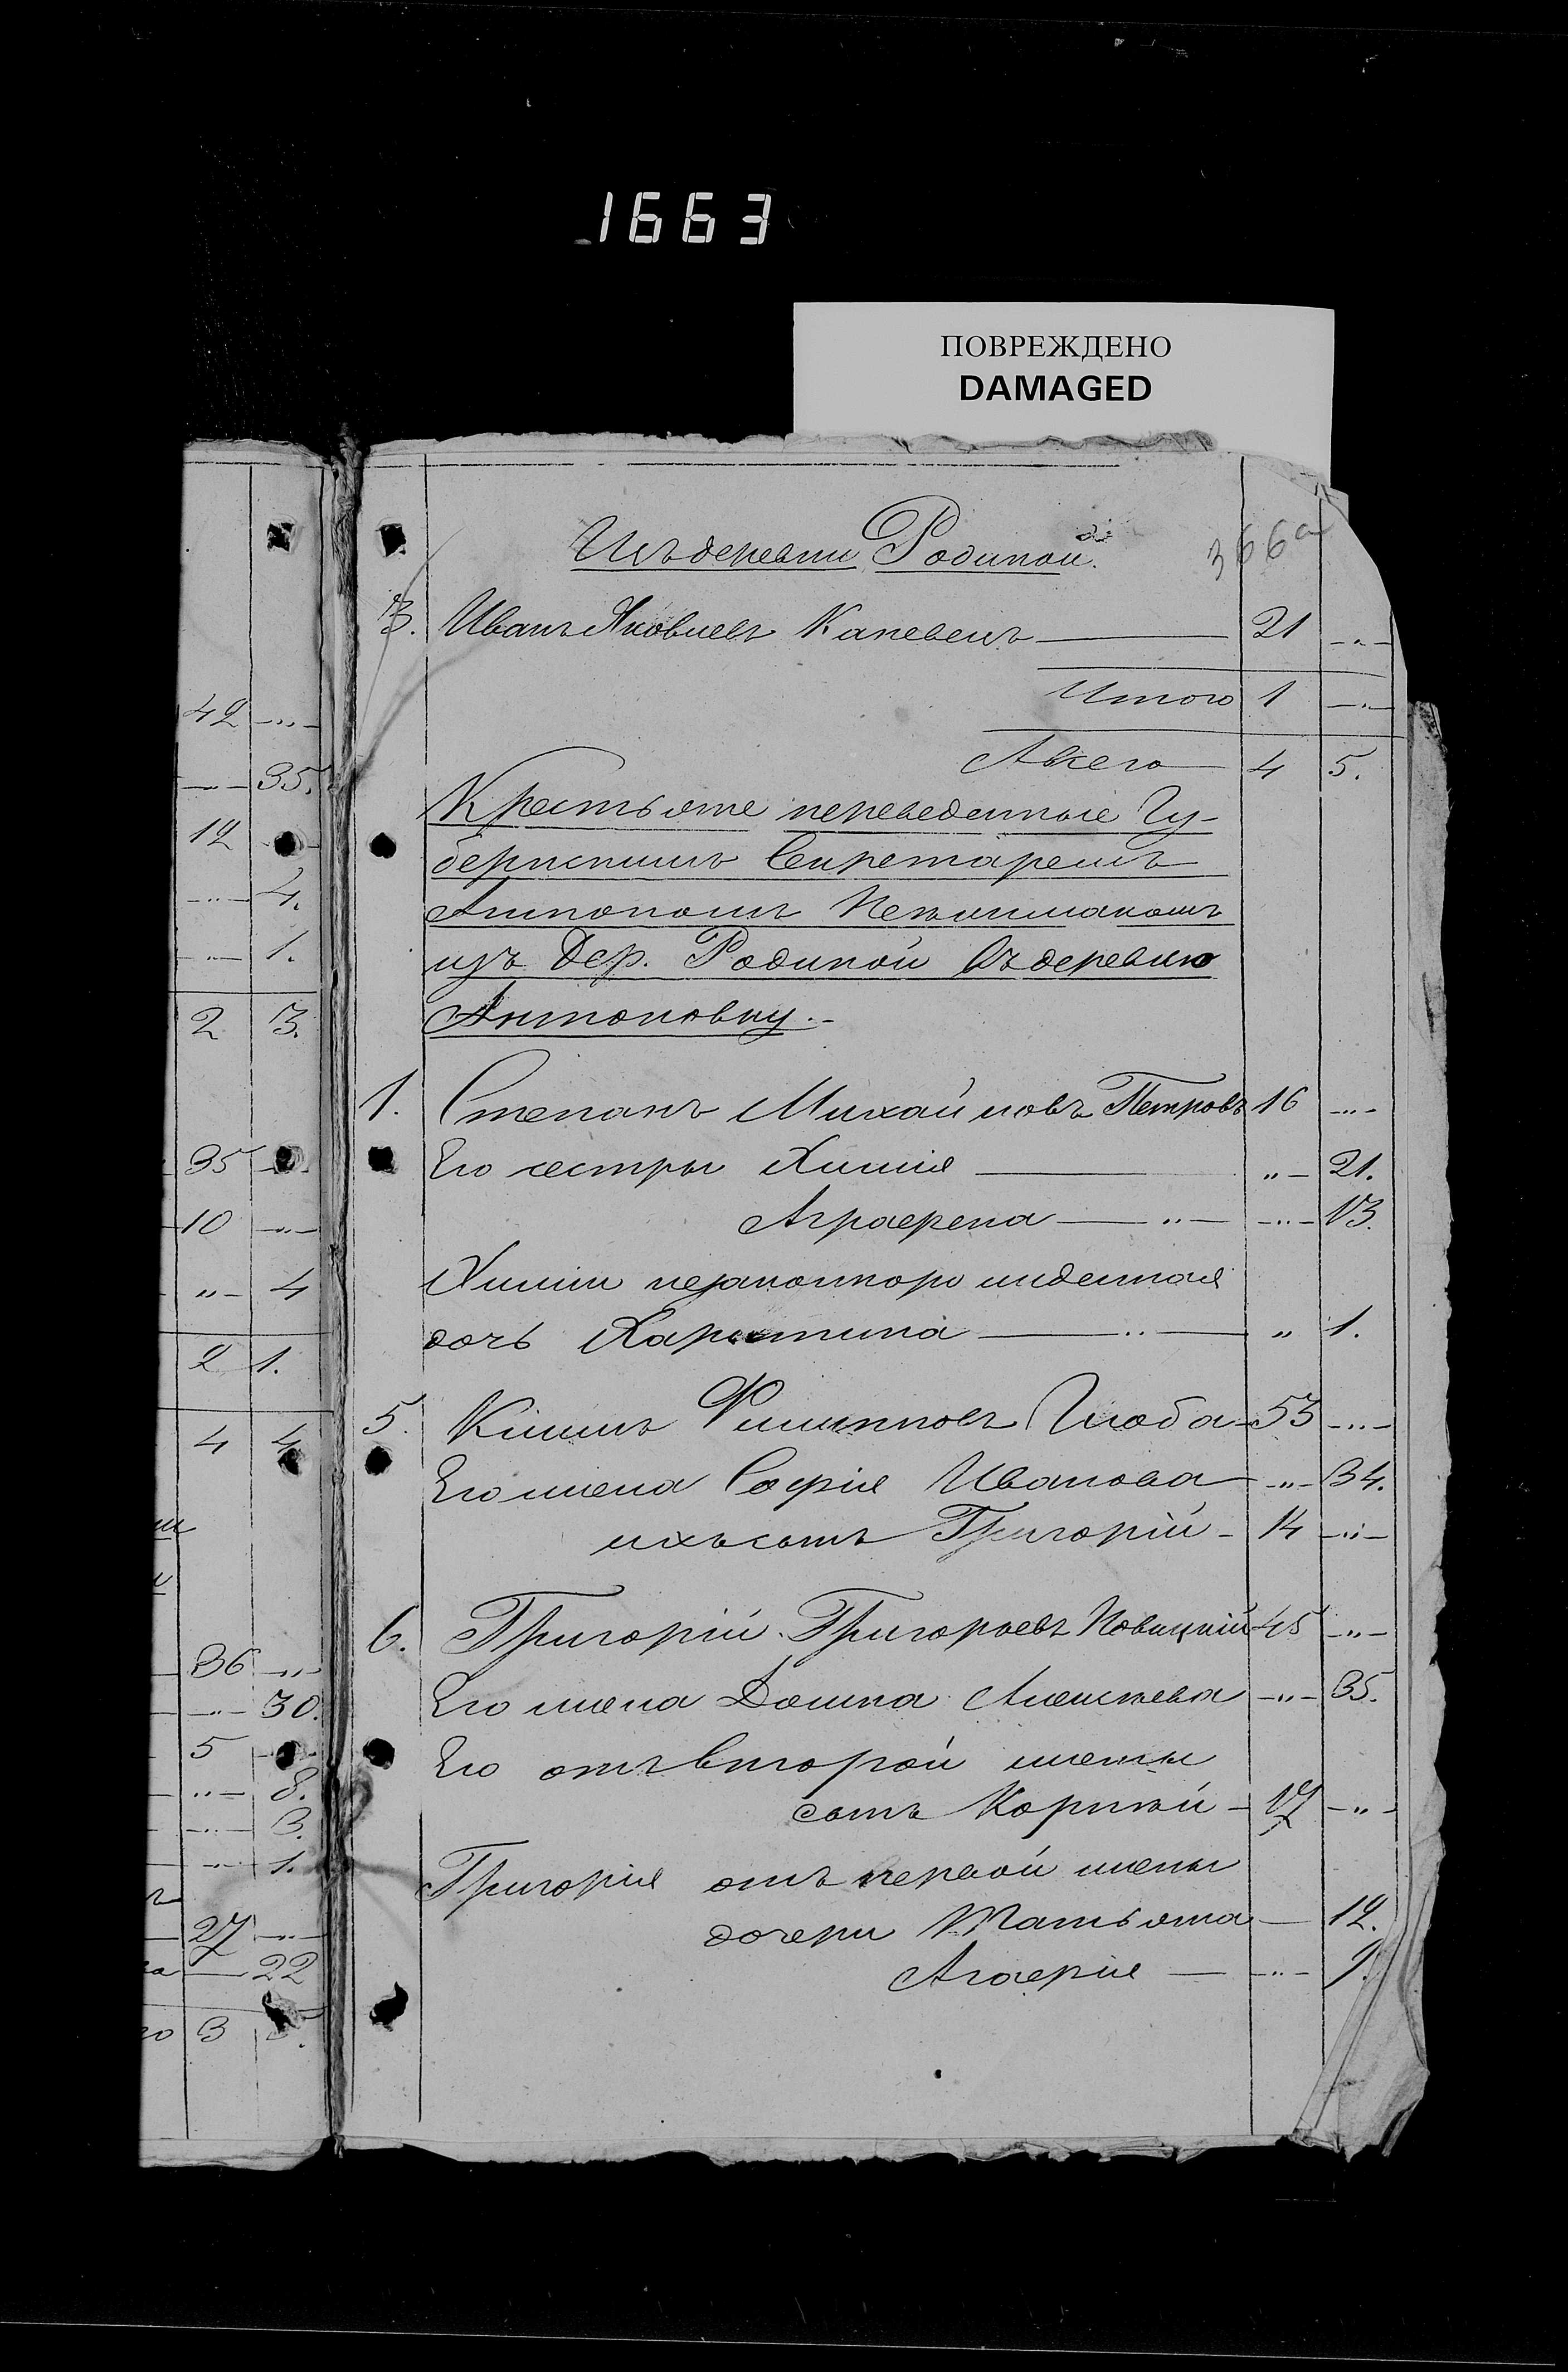 1663
ПОВРЕЖДЕНО
DAMAGED
366а
Изъ деревни Родиной.
3. Иванъ Яковлевъ Каневецъ 21 -"-
Итого 1 -"-
А всего 4 5.
Крестьяне переведенные Гу-
бернскимъ Секретаремъ
Антономъ
изъ Дер. Родиной въ деревню
Антоновку.-
1. Степанъ Михайловъ Петровъ 16 -"-
Его сестры Химія " - 21.
Аграфена -"- -"- 13.
Химіи незаконнорожденная
дочь Харитина -"- " 1.
5. Климъ Филипповъ Глоба 53 -"-
Его жена Софія Иванова -"- 34.
ихъ сынъ Григорій - 14 -"-
6. Григорій Григорьевъ Новицкій 45 -"-
Его жена Домна Алексѣева -"- 35.
Его отъ второй жены
сынъ Корнѣй - 17 -"-
Григорія отъ первой жены
дочери Татьяна - 12.
Агафія -"- 9.
42 -"-
-"- 35.
12
-"- 4.
-"- 1.
2 3.
35
10 -"-
"- 4
2 1.
4 4
36 -"-
-"- 30.
5
-"- 8.
-"- 3.
-"- 1.
27 -"-
-"- 22
3